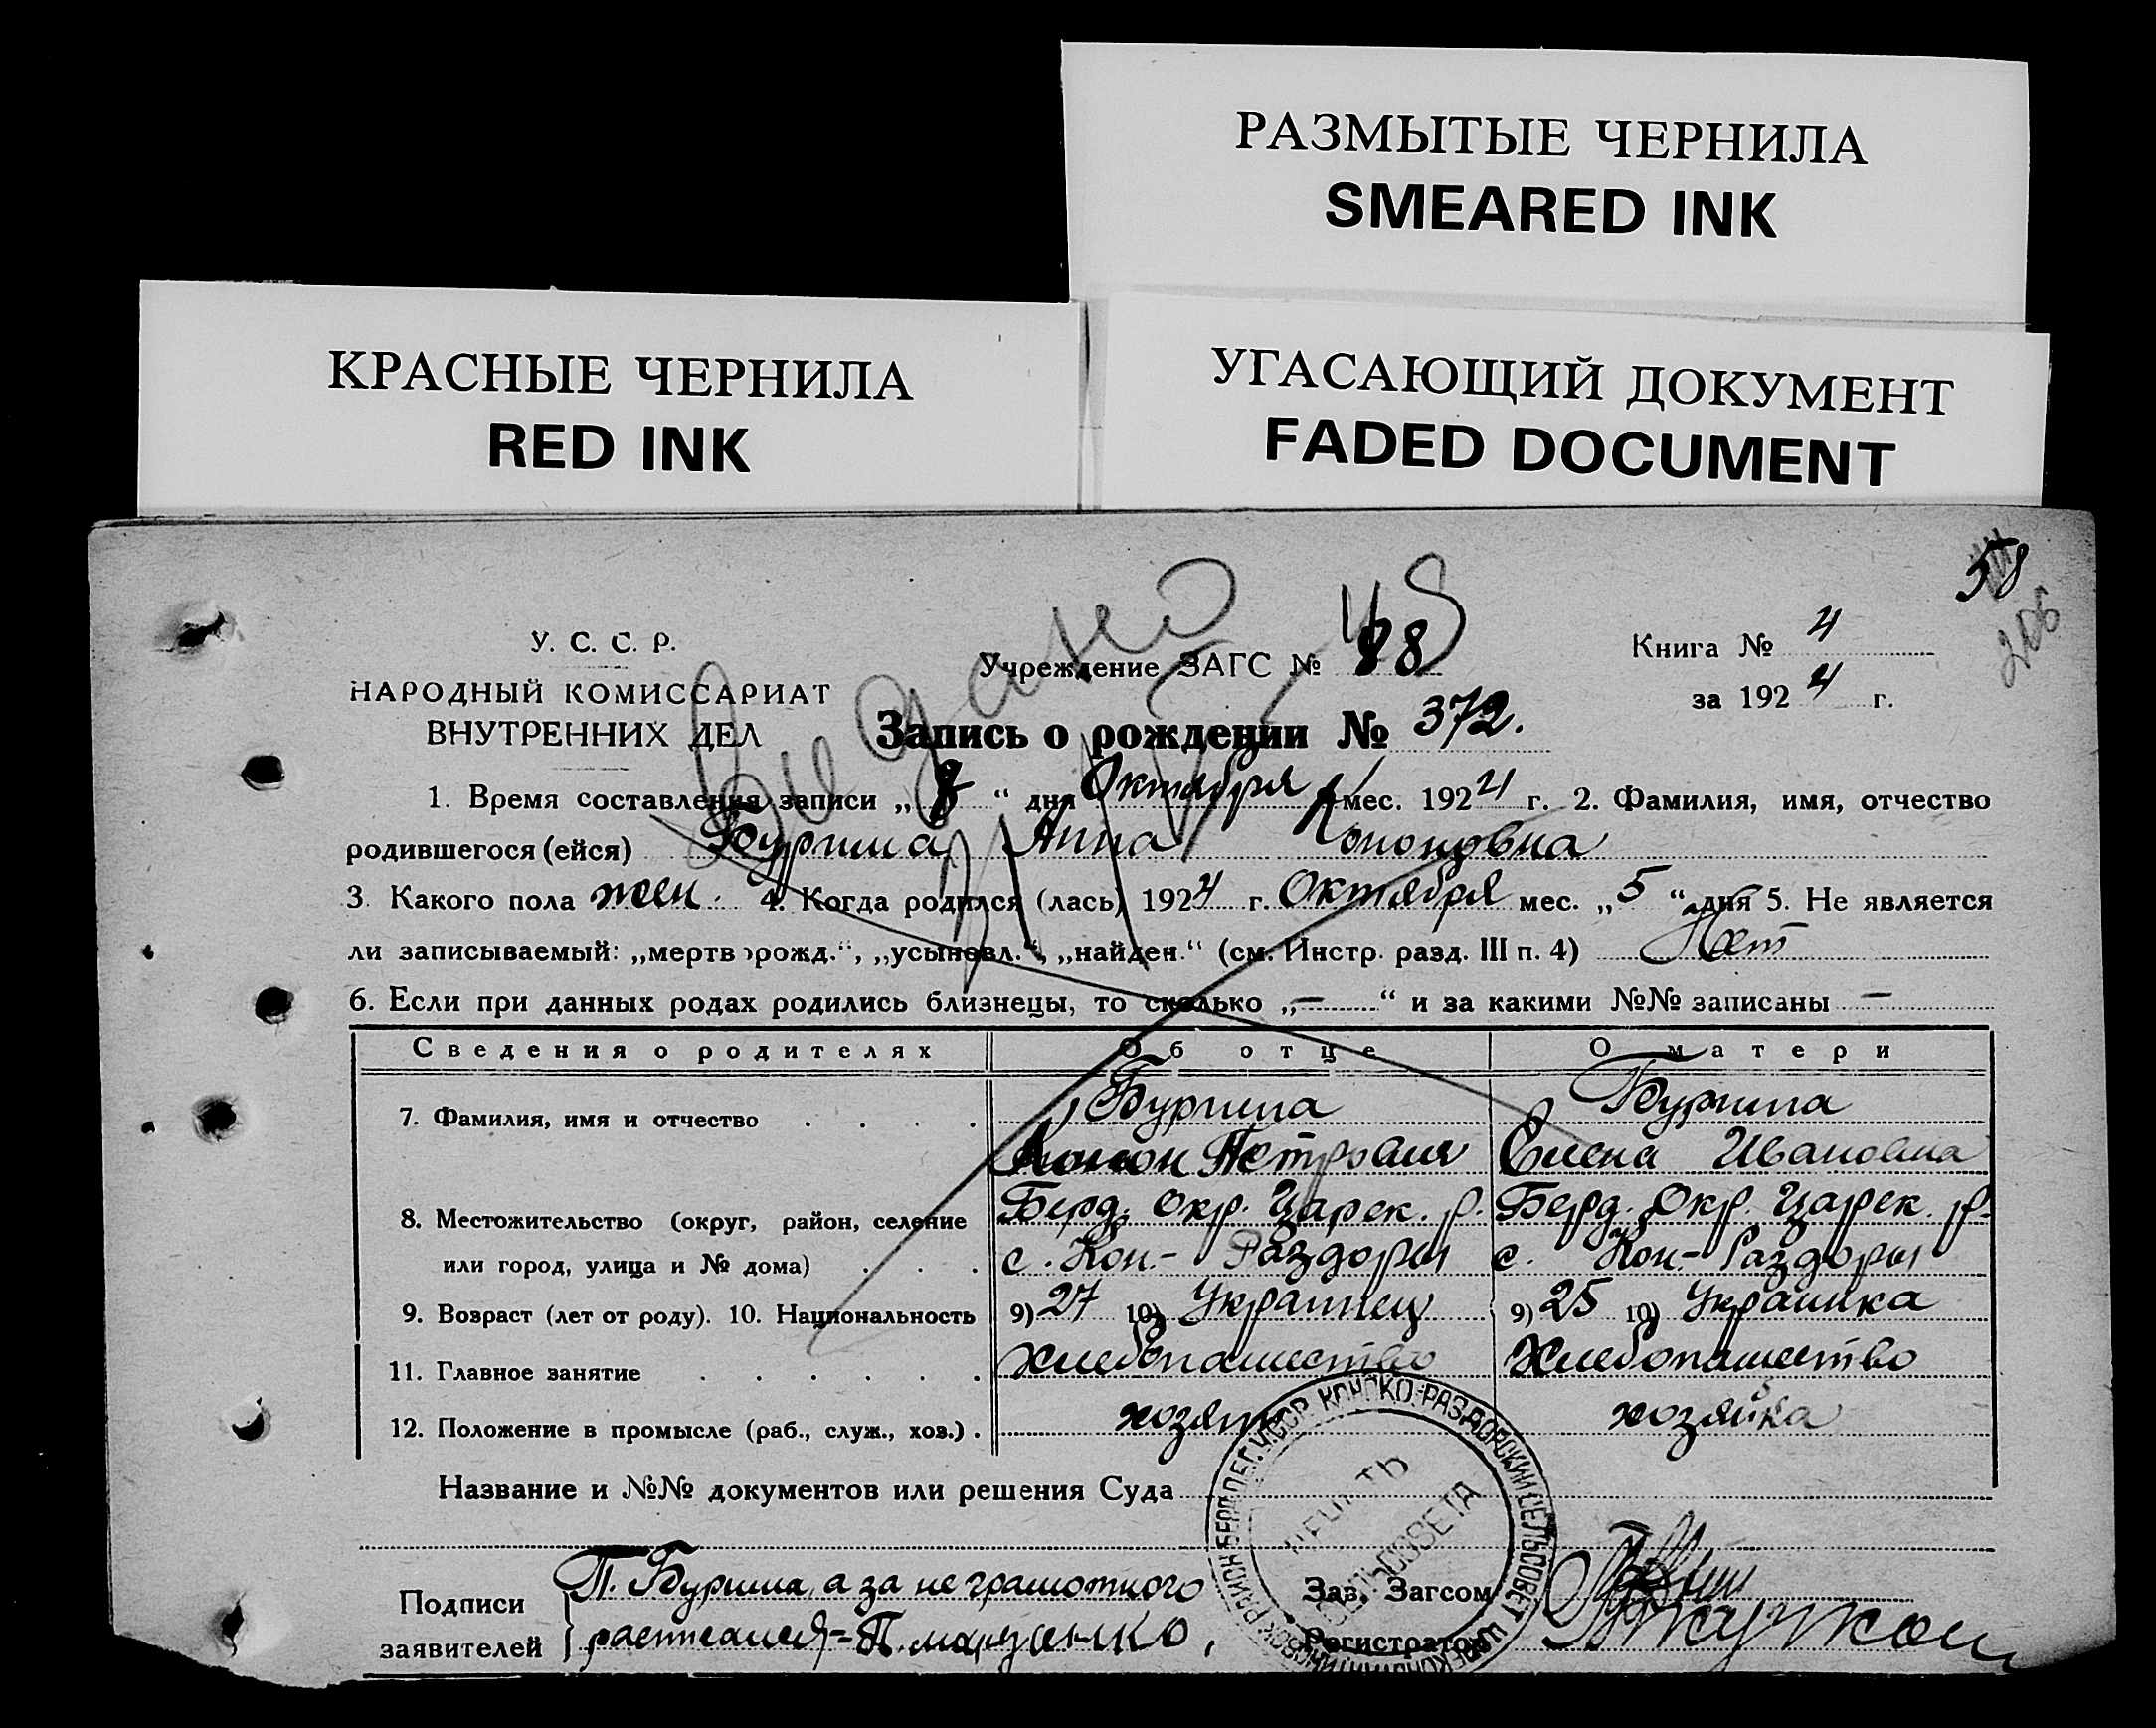 РАЗМЫТЫЕ ЧЕРНИЛА
SMEARED INK
КРАСНЫЕ ЧЕРНИЛА
RED INK
УГАСАЮЩИЙ ДОКУМЕНТ
FADED DOCUMENT
58
206
У. С. С. Р.
НАРОДНЫЙ КОМИССАРИАТ
ВНУТРЕННИХ ДЕЛ
Учреждение ЗАГС № 88
Книга № 4
за 1924 г.
Запись о рождении № 372.
1. Время составления записи „8“ дня Октября мес. 1924 г. 2. Фамилия, имя, отчество
родившегося (ейся) Бурима Анна Кононовна
3. Какого пола жен. 4. Когда родился (лась) 1924 г. Октября мес. „5“ дня 5. Не является
ли записываемый: „мертворожд.“, „усыновл.“, „найден.“ (см. Инстр. разд. III п. 4) Нет
6. Если при данных родах родились близнецы, то сколько „—“ и за какими №№ записаны —
Сведения о родителях Об отце О матери
7. Фамилия, имя и отчество . . . . Бурима Бурима
Конон Петрович Елена Ивановна
8. Местожительство (округ, район, селение Берд. Окр. Царек. р. Берд. Окр. Царек. р.
или город, улица и № дома) . . . с. Кон.-Раздоры с. Кон.-Раздоры
9. Возраст (лет от роду). 10. Национальность 9) 27 10) Украинец 9) 25 10) Украинка
11. Главное занятие . . . . . . Хлебопашество Хлебопашество
12. Положение в промысле (раб., служ., хоз.) . хозяин хозяйка
Название и №№ документов или решения Суда
КОНСКО-РАЗДОРСКИЙ СЕЛЬСОВЕТ
ПЕЧАТЬ
СЕЛЬСОВЕТА
Подписи П. Бурима, а за не грамотного Зав. Загсом
заявителей расписался - П. Регистратор